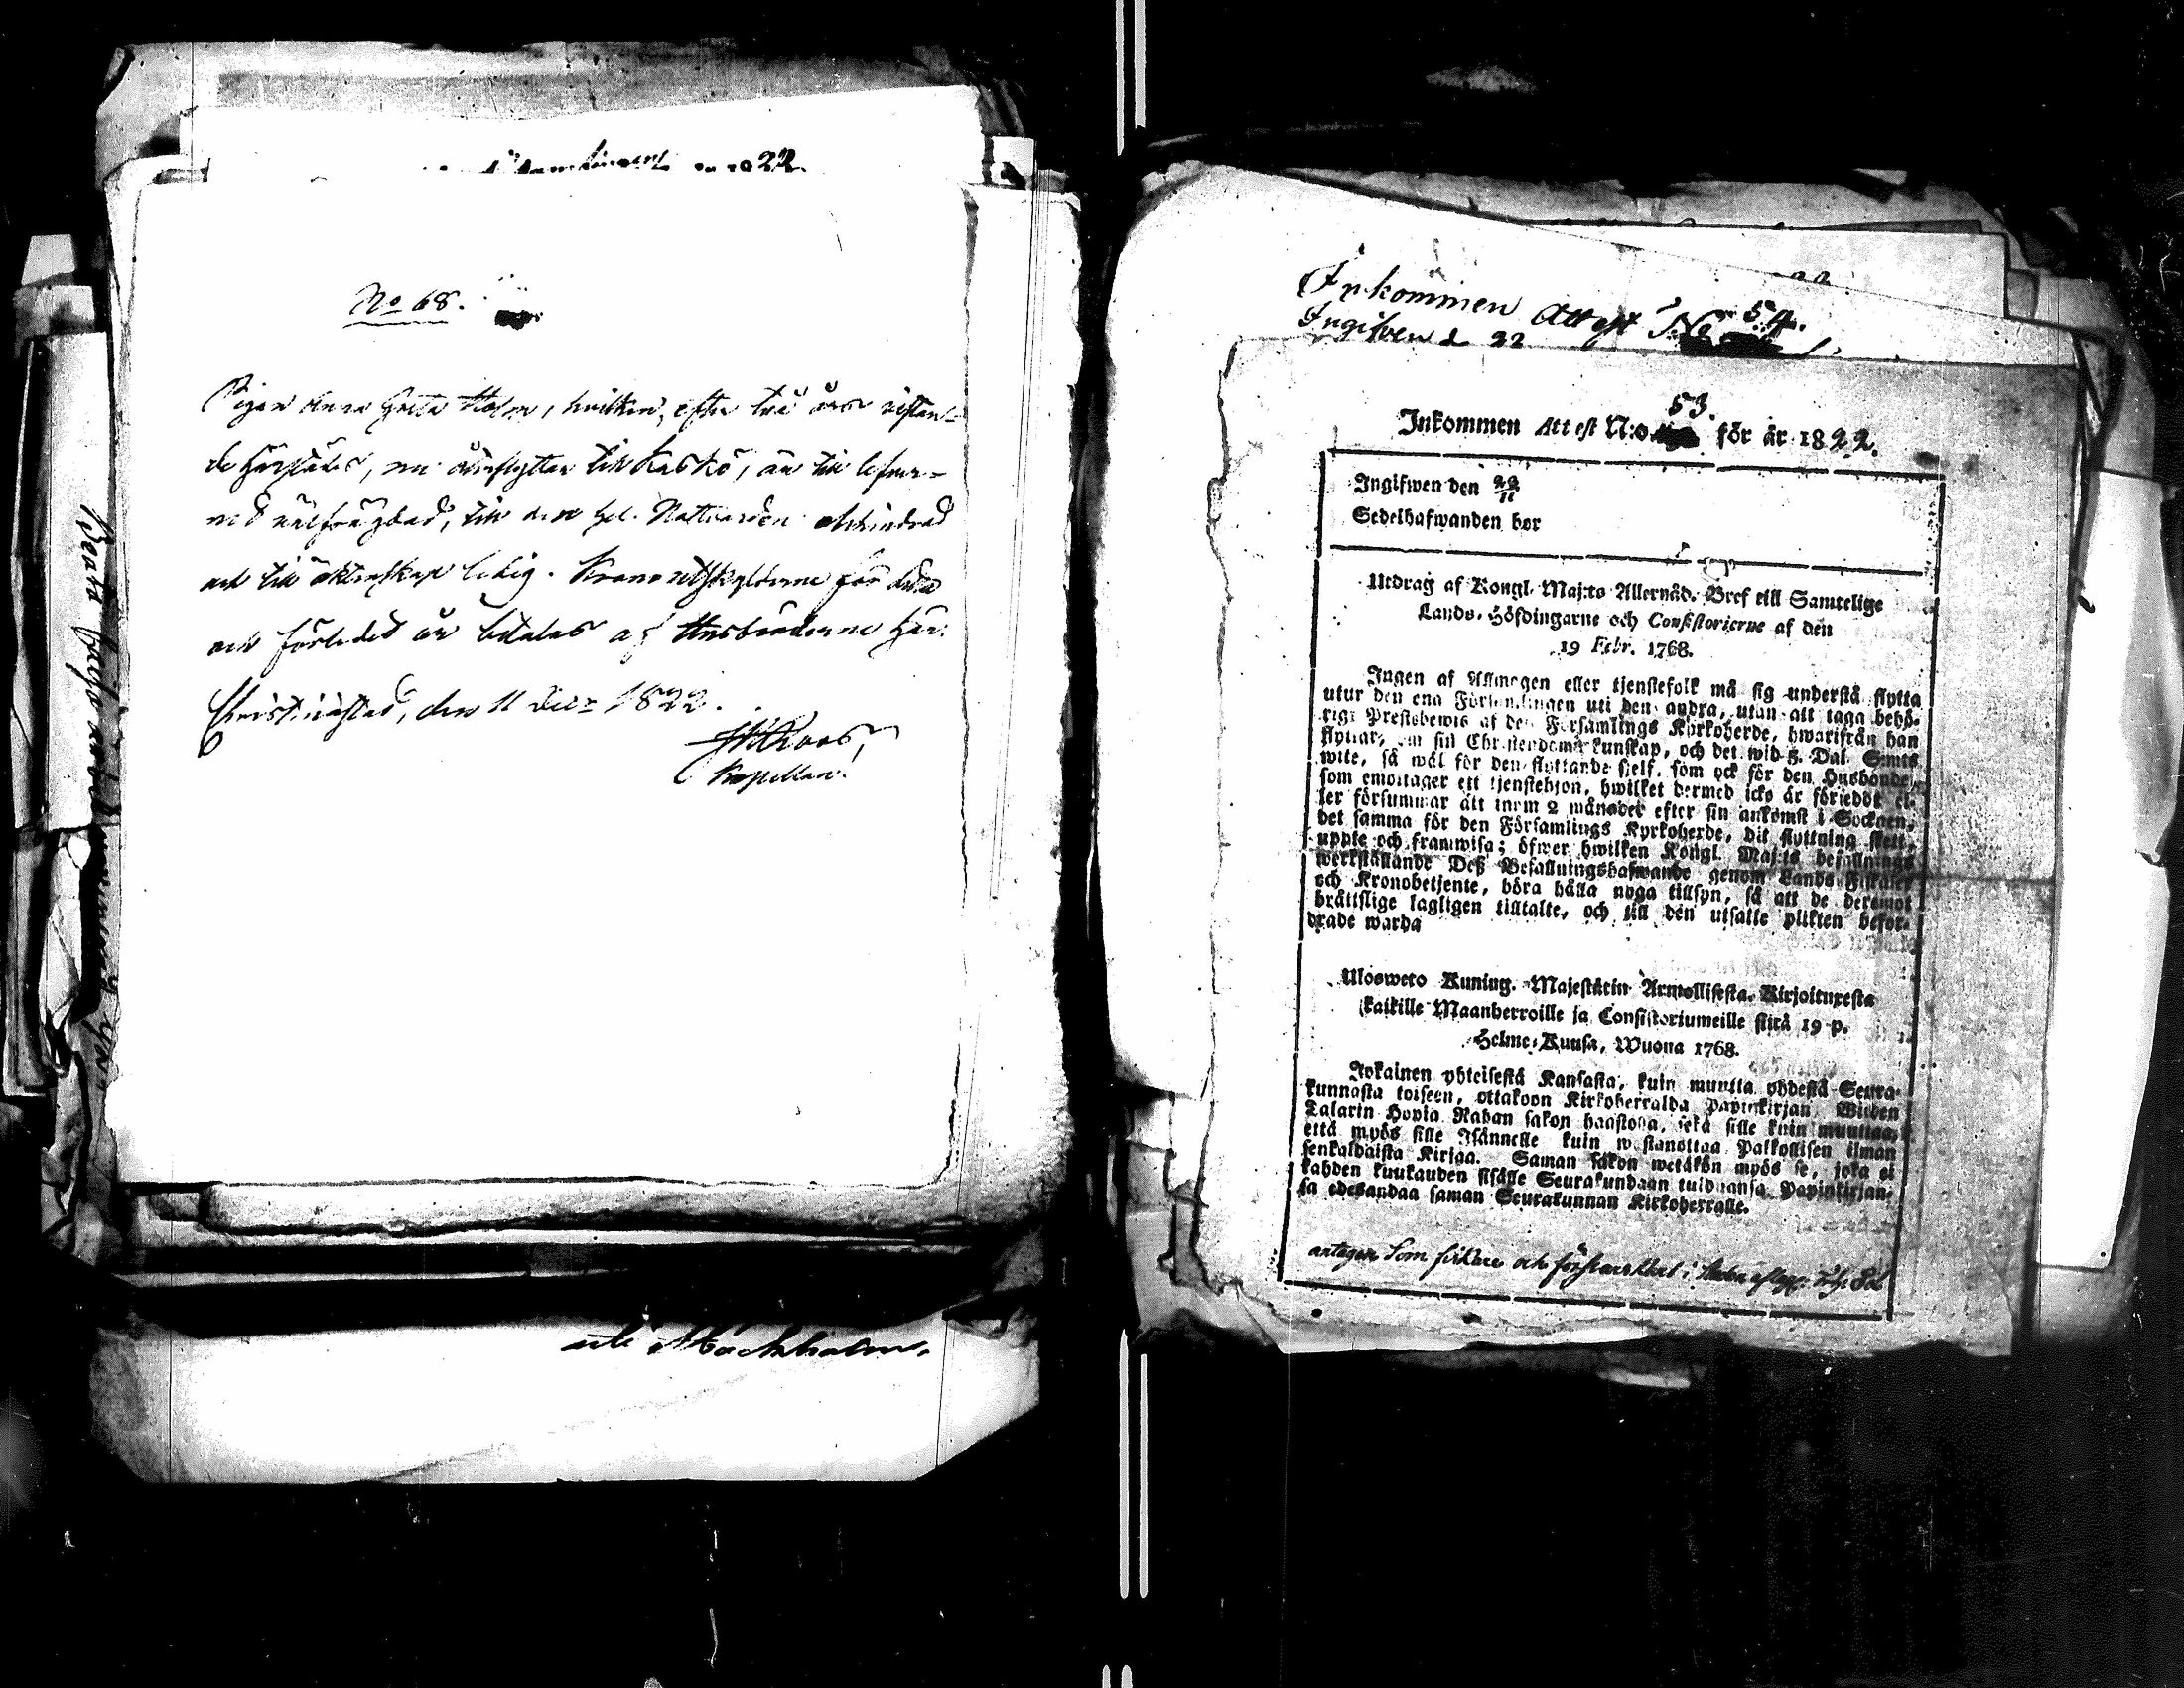 No 68.
Pigan Anna Greta Holm, hvilken, efter två års vistan-
de härstädes, nu återflyttar till Kaskö, är till lefver-
ned välfrägdad, till den Hel. Nattvarden obehindrad
och till äktenskap ledig. Kronoutskylderne för detta
och förledet år betalas af Husbönderne här.
Christinæstad, den 11 Dec. 1822.
Roos,
Kapellan.
Stockholm.
Inkommen Attest No 54.
Ingifven d 22
53.
Inkommen Attest N:o för år 1822.
Ingifwen den 29/11
Sedelhafwanden bor
Utdrag af Kongl. Maj:ts Allernåd. Bref till Samtelige
Lands-Höfdingarne och Consistorierne af den
19 Febr. 1768.
Ingen af Allmogen eller tjenstefolk må sig understå flytta
utur den ena Församlingen uti den andra, utan att taga behö-
rigt Prestebewis af den Församlings Kyrkoherde, hwarifrån han
flyttar, om sin Christendoms kunskap, och det wid 3. Dal. S:mts
wite, så wäl för den flyttande sjelf, som ock för den Husbonde,
som emottager ett tjenstehjon, hwilket dermed icke är försedt el-
ler försummar att inom 2 månader efter sin ankomst i Socknen,
det samma för den Församlings Kyrkoherde, dit flyttning skett,
uppte och framwisa; öfwer hwilken Kongl. Maj:ts befallnings
werkställande Deß Befallningshafwande genom Lands Fiskaler
och Kronobetjente, böra hålla noga tillsyn, så att de deremot
bråttslige lagligen tilltalte, och till den utsatte plikten befor-
drade warda
Ulosweto Kuning. Majestätin Armollisesta Kirjoituxesta
kaikille Maanherroille ja Consistoriumeille siitä 19 p.
Helme-Kuusa, Wuona 1768.
Jokainen yhteisestä Kansasta, kuin muutta yhdestä Seura-
kunnasta toiseen, ottakoon Kirkoherralda Papinkirjan Wiiden
Talarin Hopia Rahan sakon haastolla, sekä sille kuin muuttaa,
että myös sille Isännelle kuin wastanottaa Palkollisen ilman
senkaldaista Kirjaa. Saman sakon wetäkön myös se, joka ei
kahden kuukauden sisälle Seurakundaan tulduansa Papinkirjan-
sa edesandaa saman Seurakunnan Kirkoherralle.
antagen som fiskare och